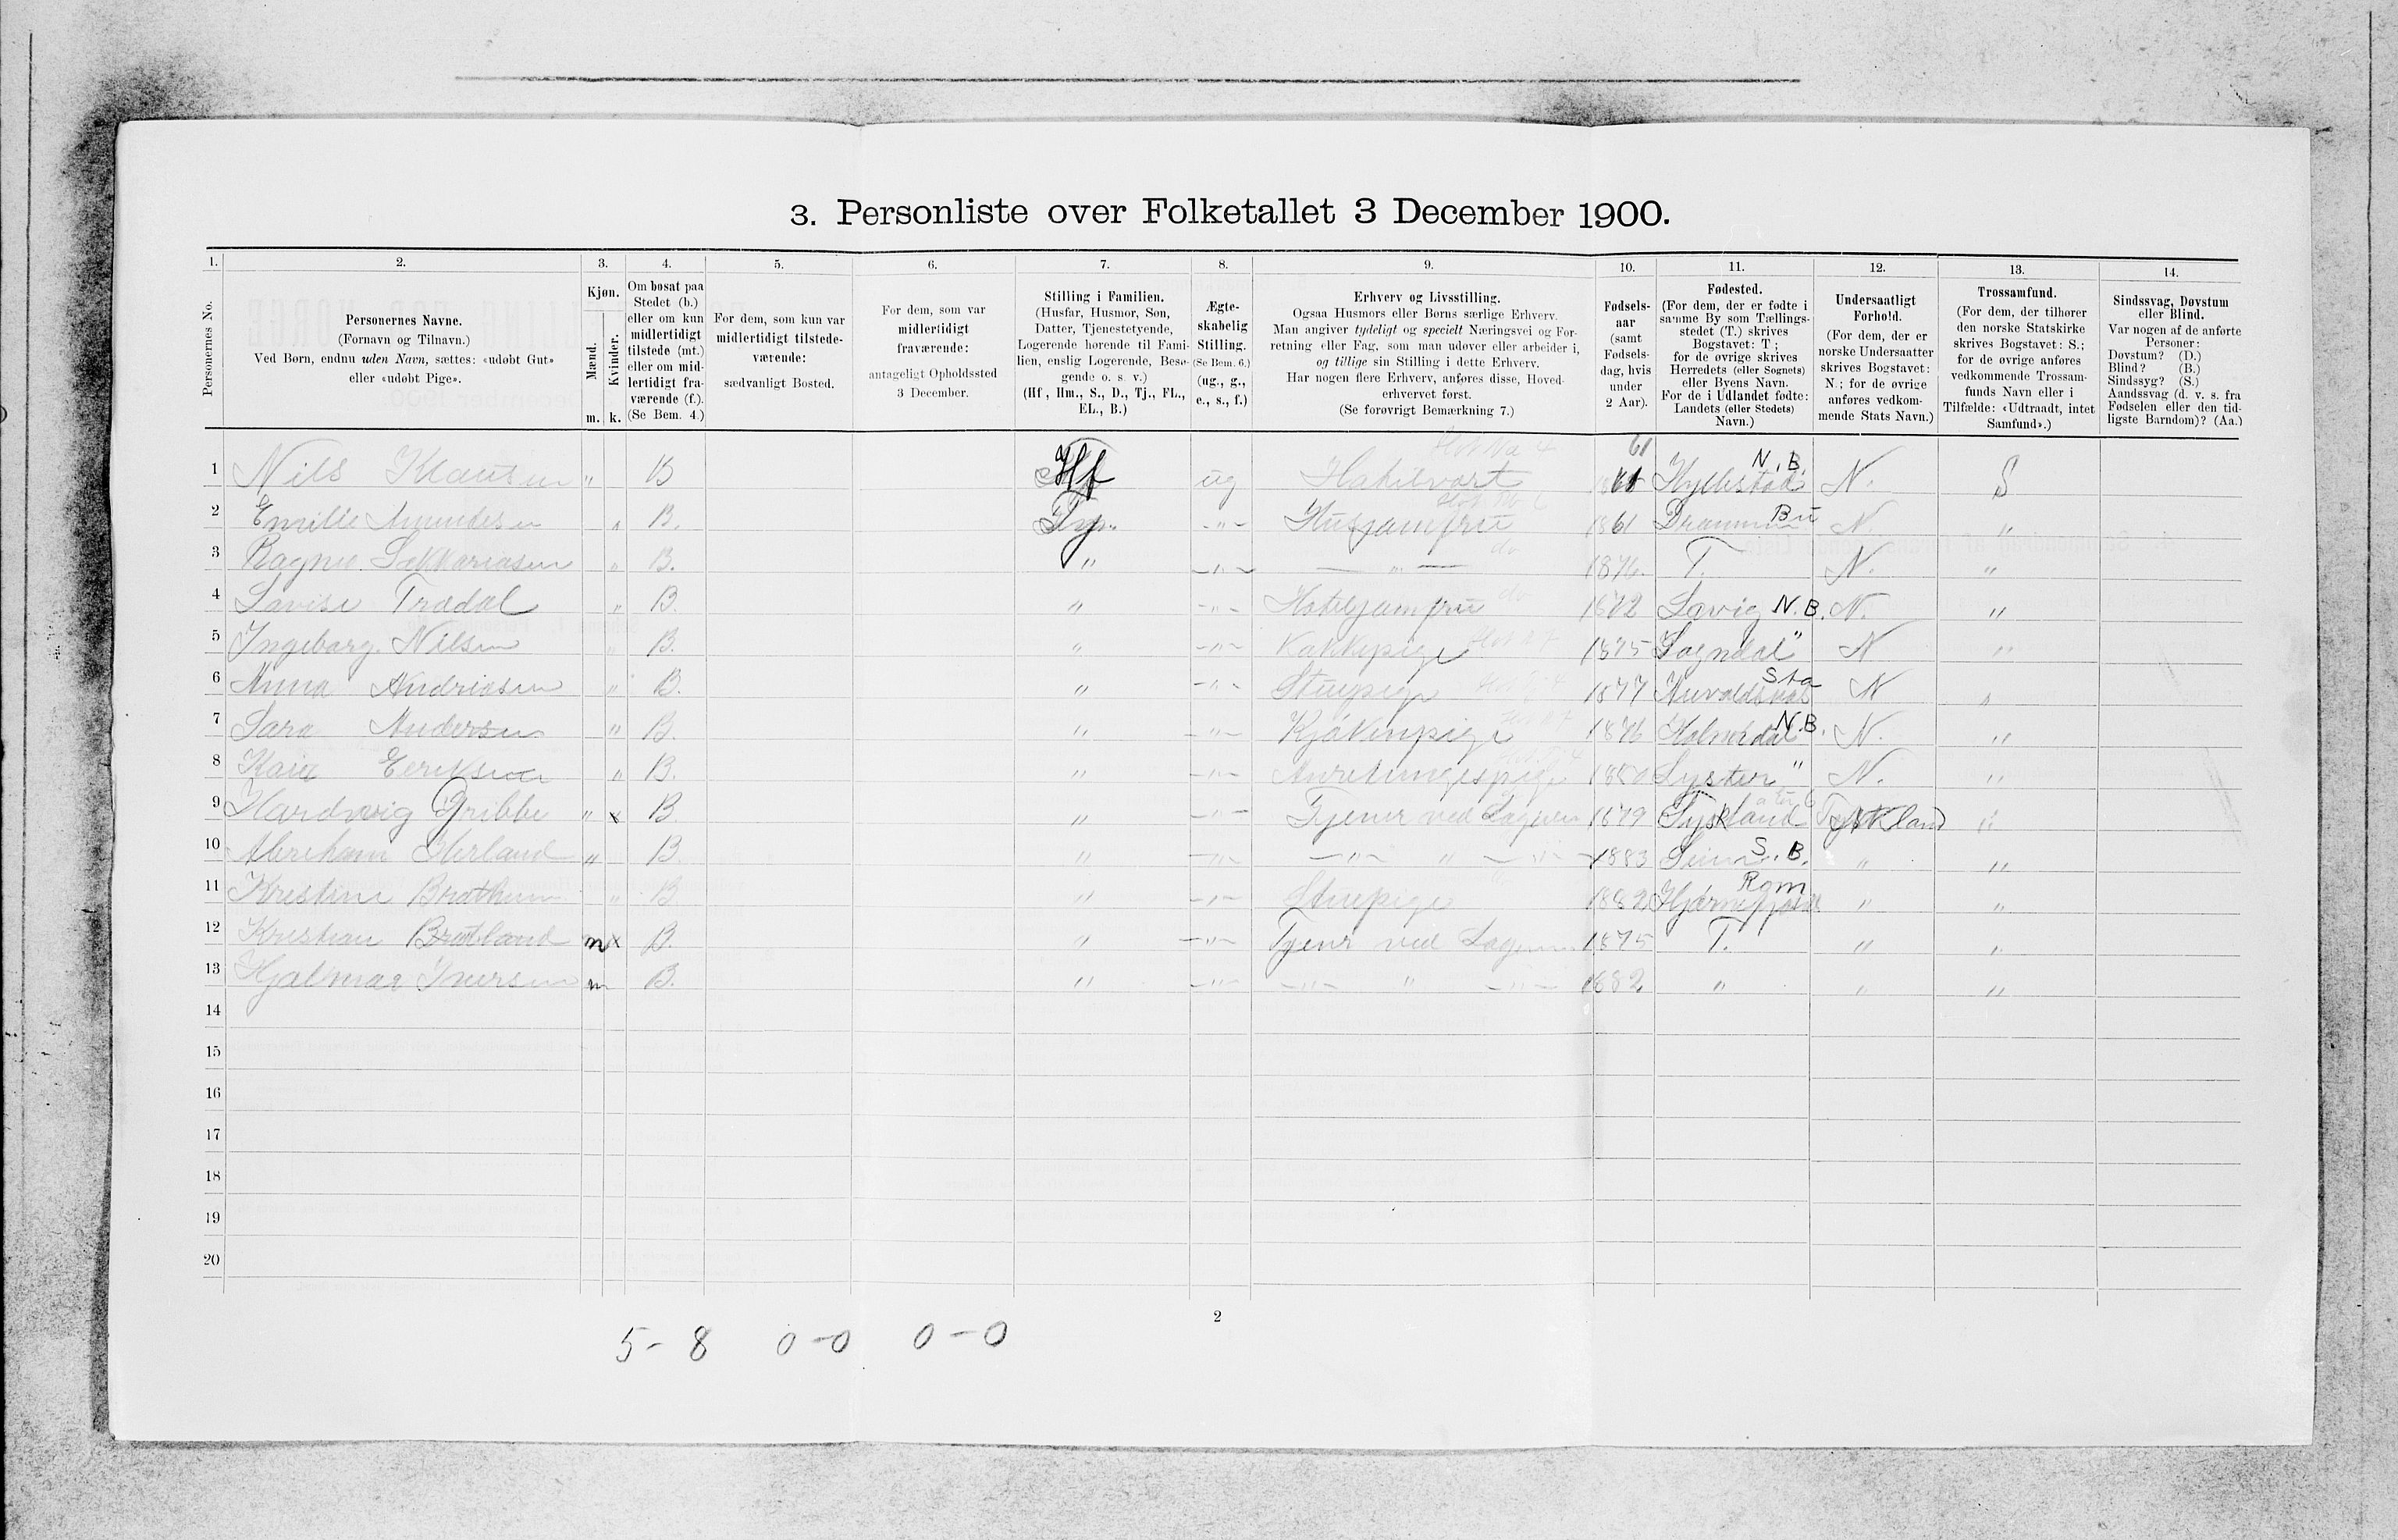 3. Personliste over Folketallet 3 December 1900.
1. 2. 3. 4. 5. 6. 7. 8. 9. 10. 11. 12. 13. 14.
Personernes No.
Personernes Navne.
(Fornavn og Tilnavn.)
Ved Børn, endnu uden Navn, sættes: «udøbt Gut»
eller «udøbt Pige».
Kjøn.
Mænd.
Kvinder.
m. k.
Om bosat paa
Stedet (b.)
eller om kun
midlertidigt
tilstede (mt.)
eller om mid-
lertidigt fra-
værende (f.).
(Se Bem. 4.)
For dem, som kun var
midlertidigt tilstede-
værende:
sædvanligt Bosted.
For dem, som var
midlertidigt
fraværende:
antageligt Opholdssted
3 December.
Stilling i Familien.
(Husfar, Husmor, Søn,
Datter, Tjenestetyende,
Logerende hørende til Fami-
lien, enslig Logerende, Besø-
gende o. s. v.)
(Hf, Hm., S., D., Tj., FL.,
EL., B.)
Ægte-
skabelig
Stilling.
(Se Bem. 6.)
(ug., g.,
e., s., f.)
Erhverv og Livsstilling.
Ogsaa Husmors eller Børns særlige Erhverv.
Man angiver tydeligt og specielt Næringsvei og For-
retning eller Fag, som man udøver eller arbeider i,
og tillige sin Stilling i dette Erhverv.
Har nogen flere Erhverv, anføres disse, Hoved-
erhvervet først.
(Se forøvrigt Bemærkning 7.)
Fødsels-
aar
(samt
Fødsels-
dag, hvis
under
2 Aar).
Fødested.
(For dem, der er fødte i
samme By som Tællings-
stedet (T.) skrives
Bogstavet: T;
for de øvrige skrives
Herredets (eller Sognets)
eller Byens Navn.
For de i Udlandet fødte:
Landets (eller Stedets)
Navn.)
Undersaatligt
Forhold.
(For dem, der er
norske Undersaatter
skrives Bogstavet:
N.; for de øvrige
anføres vedkom-
mende Stats Navn.)
Trossamfund.
(For dem, der tilhører
den norske Statskirke
skrives Bogstavet: S.;
for de øvrige anføres
vedkommende Trossam-
funds Navn eller i
Tilfælde: «Udtraadt, intet
Samfund».)
Sindssvag, Døvstum
eller Blind.
Var nogen af de anførte
Personer:
Døvstum? (D.)
Blind? (B.)
Sindssyg? (S.)
Aandssvag (d. v. s. fra
Fødselen eller den tid-
ligste Barndom)? (Aa.)
1 Nils Klausen " B Hf ug 61 N.B. N. S
2 Emilie Amundsen " B. -"- Husjomfru 1861 Drammen Bu N. "
3 Ragna " B. " -"- - " - 1876 T. N. "
4 " B. " -"- Hoteljomfru 1872 Lavig N.B. N. "
5 Ingeborg Nilsen " B. " -"- Kokkepige 1875 Sogndal " N "
6 Anna Andreasen " B. " -"- Stuepige 1877 Sta N "
7 Sara Andersen " B. " -"- Kjøkenpige 1876 Holmedal N.B. N. "
8 Kaia " B. " -"- 1880 Lyster " N. "
9 Hardvig Gribbe " x B. " -"- Tjener ved 1879 Tyskland Tyskland "
10 " B. " -"- -"- " -"- 1883 S.B. " "
11 Kristine " B " -"- Stuepige 1882 Rom " "
12 Kristian m x B. " -"- Tjener ved 1875 T. " "
13 Hjalmar Iversen m B. " -"- -"- " -"- 1882 " " "
14
15
16
17
18
19
20
2
5 - 8 0 - 0 0 - 0